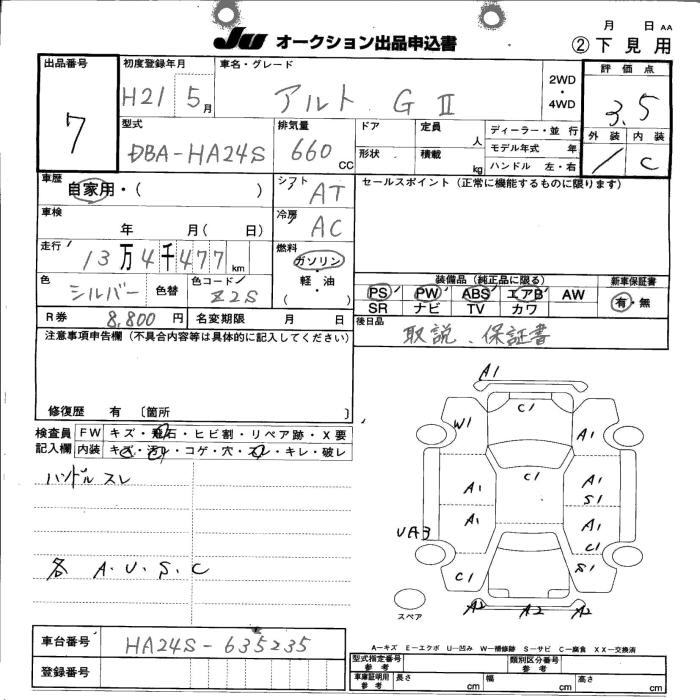 月 日 AA
JU オークション出品申込書 ②下見用
出品番号 初度登録年月 車名・グレード 2WD・4WD 評価点
7 H21 5月 アルト GⅡ 3.5
型式 排気量 ドア 定員 人 ディーラー・並行 外装 内装
DBA-HA24S 660 CC 形状 積載 kg モデル年式 年 / C
ハンドル 左・右
車歴 シフト セールスポイント (正常に機能するものに限ります)
自家用・( ) AT
車検 冷房
年 月( 日) AC
走行 燃料
13万4千477 km ガソリン
軽・油
( )
色 色替 色コード 装備品(純正品に限る) 新車保証書
シルバー Z2S PS PW ABS エアB AW 有・無
SR ナビ TV カワ
R券 8,800円 名変期限 月 日 後日品
取説、保証書
注意事項申告欄 (不具合内容等は具体的に記入してください)
修復歴 有 〔箇所 〕
検査員 FW キズ・飛石・ヒビ割・リペア跡・X要
記入欄 内装 キズ・汚レ・コゲ・穴・スレ・キレ・破レ
ハンドル スレ
各 A.U.S.C
A1
C1
W1 A1
C1
A1 A1
S1
A1 A1
UA3 C1
C1 S1
A2 A2 A2
スペア
車台番号 HA24S-635235
登録番号
A−キズ E−エクボ U−凹み W−補修跡 S−サビ C−腐食 XX−交換済
型式指定番号 参考 類別区分番号 参考
車庫証明用 参考 長さ cm 幅 cm 高さ cm